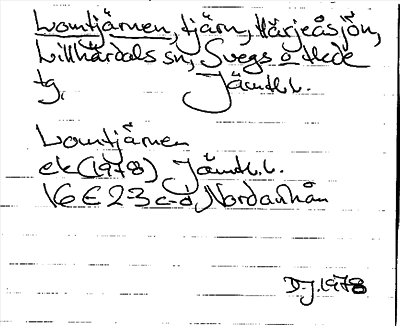 Lomtjärnen, tjärn, Härjeåsjön,
Lillhärdals sn, Svegs o Hede
tg, Jämtl.l.
Lomtjärnen
ek (1978) Jämtl.l.
16 E 23 c-d, Nordanhån
D.J. 1978